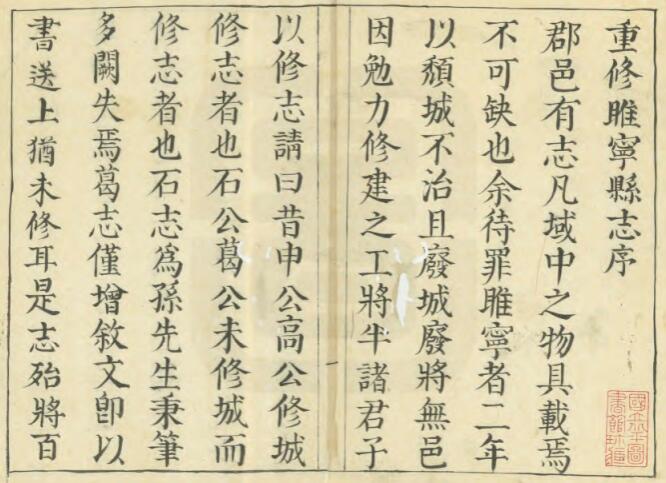 重修睢寧縣志序
郡邑有志凡域中之物具載焉
不可缺也余待罪睢寧者二年
以頹城不治且廢城廢將無邑
因勉力修建之工將半諸君子
以修志請曰昔申公高公修城
修志者也石公葛公未修城而
修志者也石志爲孫先生秉筆
多闕失焉葛志僅增敘文卽以
書送上猶未修耳是志殆將百
國立北平圖
書館珍藏